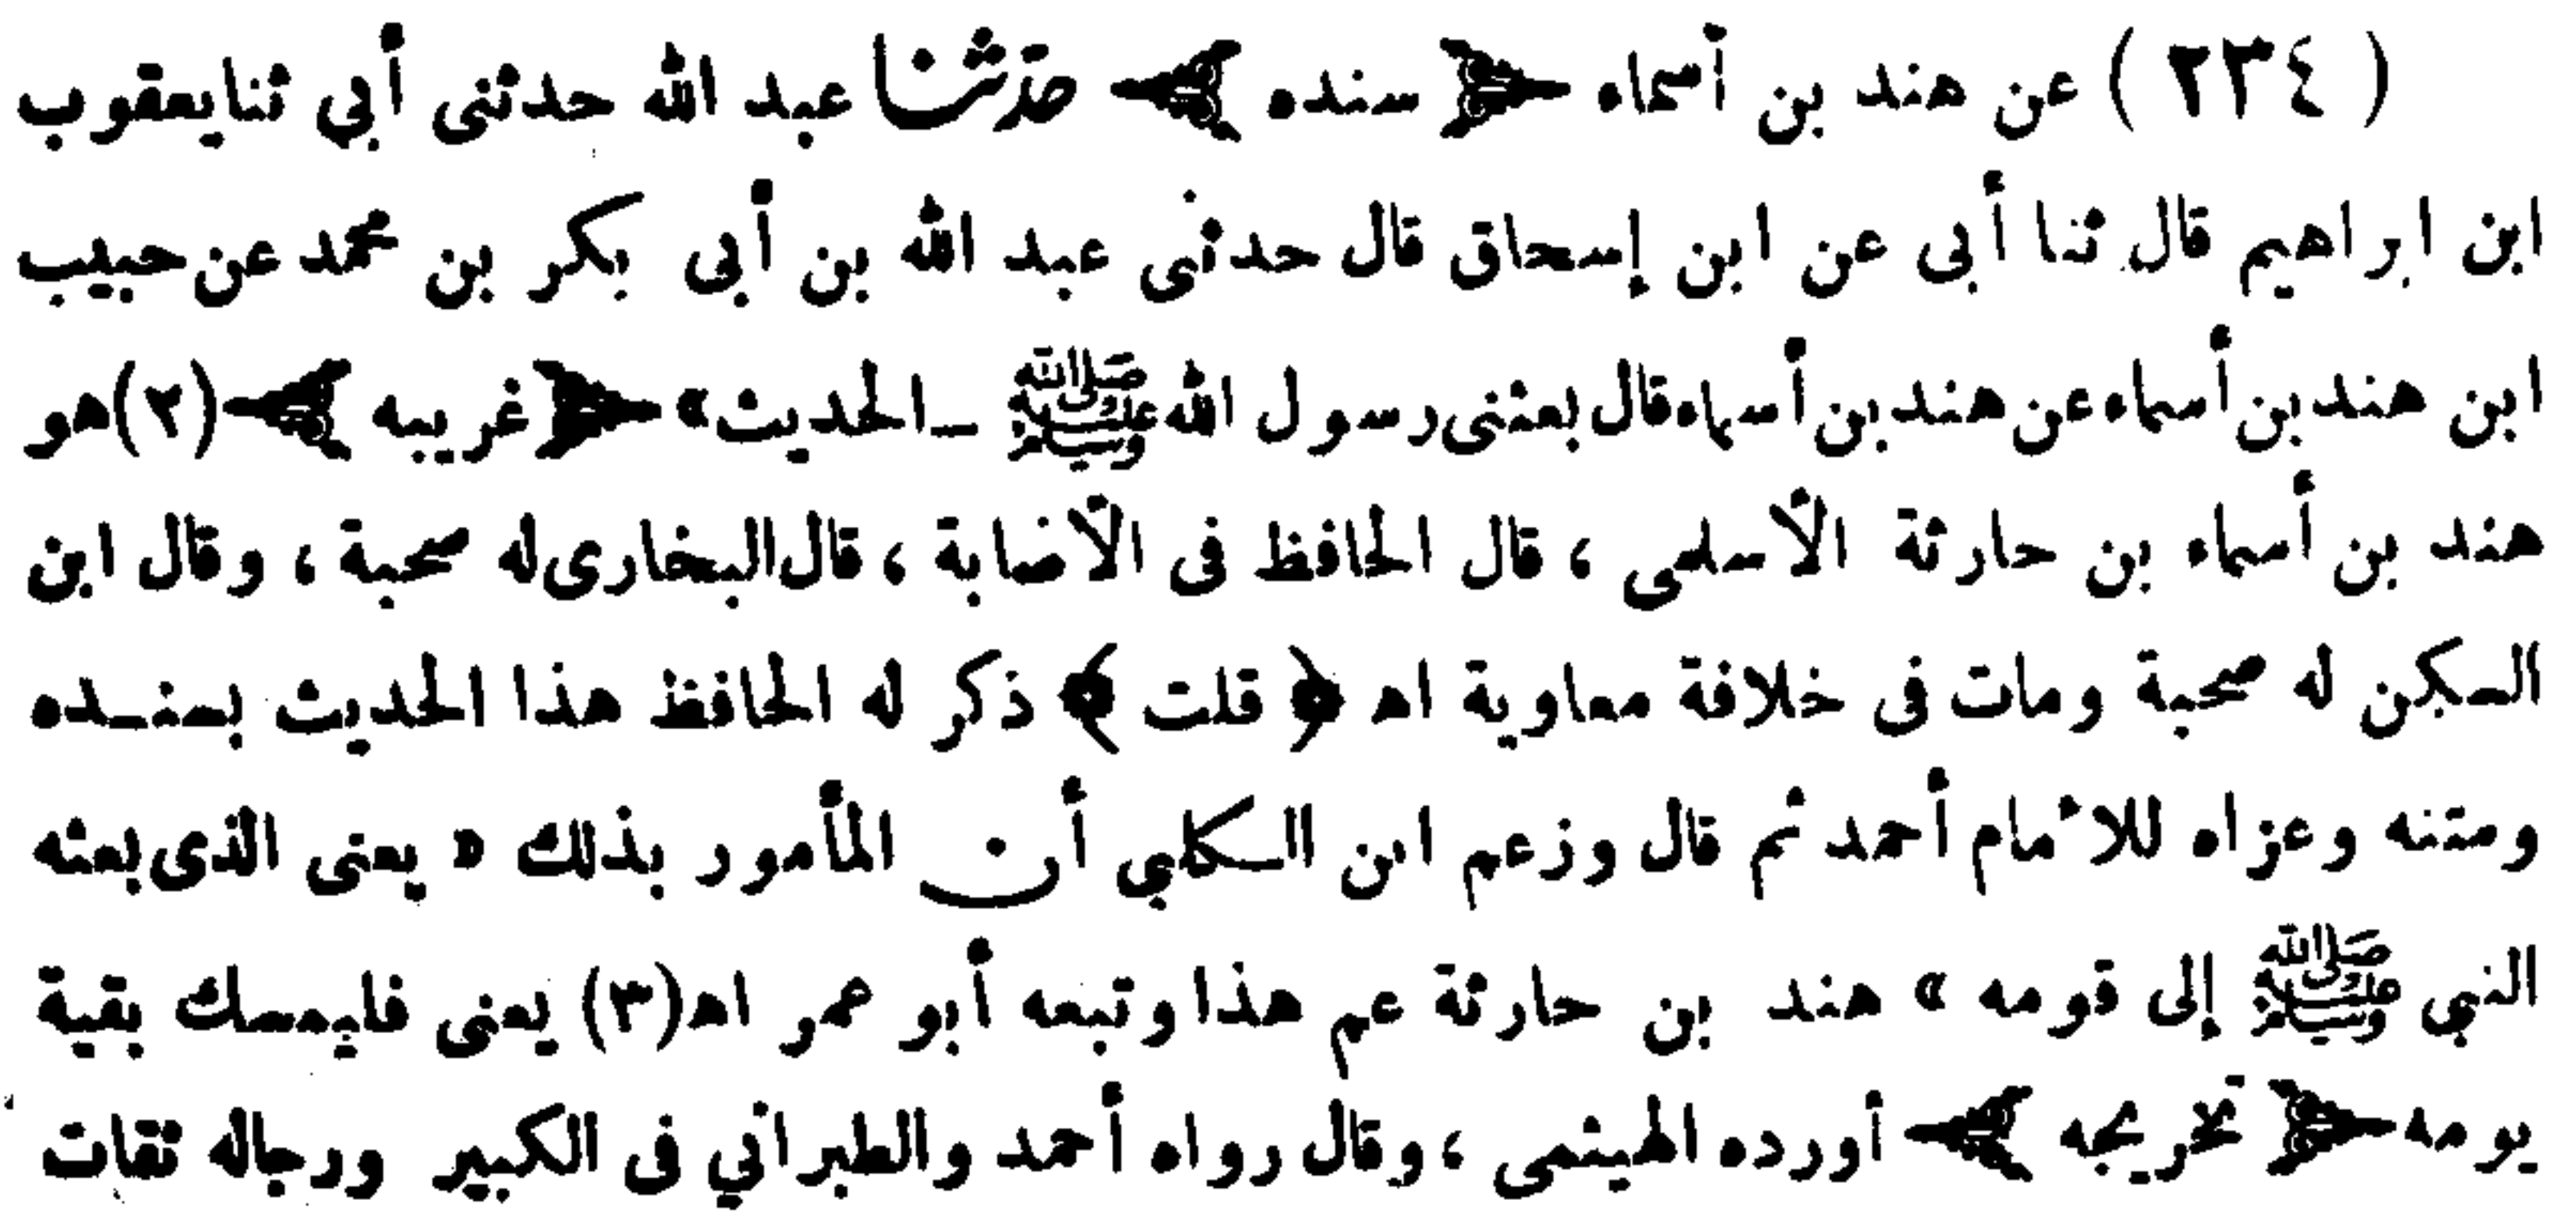 ( ٢٣٤ ) عن هند بن أسماء ﴿ سنده ﴾ حدثنا عبد الله حدثنى أبي ثنا يعقوب
ابن ابراهيم قال ثنا أبى عن ابن إسحاق قال حدثنى عبد الله بن أبى بكر بن محمد عن حبيب
ابن هند بن أسماء عن هند بن أسماء قال بعثنى رسول الله ﷺ ــ الحديث» ﴿ غريبه ﴾ (٢) هو
هند بن أسماء بن حارثة الأسلمى ، قال الحافظ فى الأصابة ، قال البخارى له صحبة ، وقال ابن
السكن له صحبة ومات فى خلافة معاوية اه ﴿ قلت ﴾ ذكر له الحافظ هذا الحديث بسنده
ومتنه وعزاه للأمام أحمد ثم قال وزعم ابن الكلبي أن المأمور بذلك « يعنى الذى بعثه
النبي ﷺ إلى قومه » هند بن حارثة عم هذا وتبعه أبو عمر اه (٣) يعنى فليمسك بقية
يومه ﴿ تخريجه ﴾ أورده الهيثمى ، وقال رواه أحمد والطبراني فى الكبير ورجاله ثقات